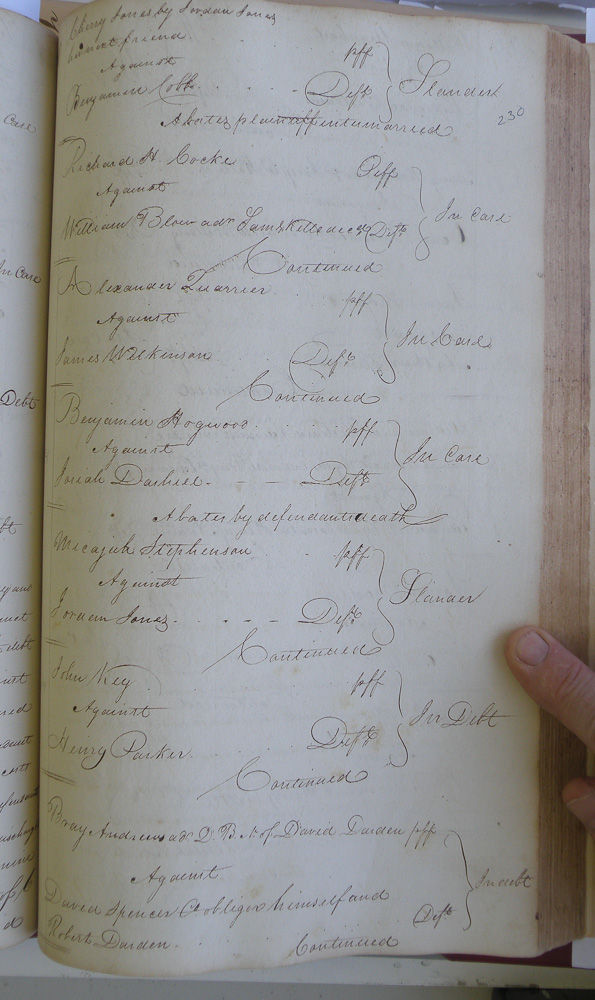 Cherry Jones by Jordan Jones
her next friend pff
Against Slander
Benjamin Cobb Deft
Abates plaintiff intermarried
230
Richard H. Cocke Pff
Against In Case
William Blow adr Saml Kello decd Deft
Continued
Alexander Quarrier pff
Against In Case
James Wilkinson Deft
Continued
Benjamin Hogwood pff
Against In Case
Josiah Dashiel Deft
Abates by defendants death
Micajah Stephenson pff
Against Slander
Jordan Jones Deft
Continued
John Key pff
Against In Debt
Henry Parker Deft
Continued
Bray Andrews adr D. B. N. of David Darden pff
Against In debt
David Spencer obligor himself and
Robert Darden Deft
Continued
Case
In Case
Debt
debt